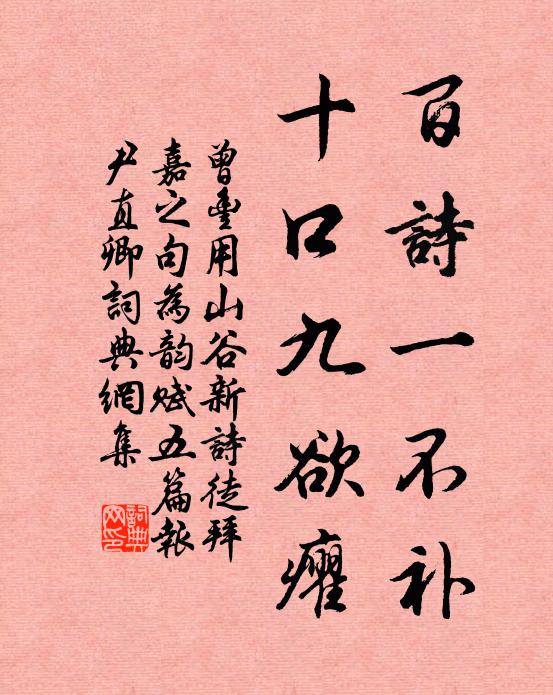 百詩一不补
十口九欲癯
曾豊用山谷新詩徒拜
嘉之句為韵赋五篇報
尹直卿詞典網集
詞典网印